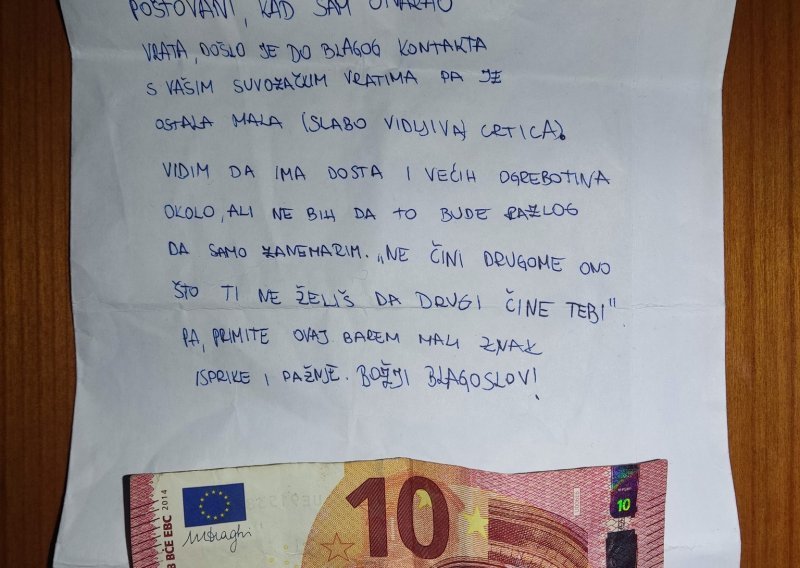 POŠTOVANI, KAD SAM OTVARAO
VRATA, DOŠLO JE DO BLAGOG KONTAKTA
S VAŠIM SUVOZAČKIM VRATIMA PA JE
OSTALA MALA (SLABO VIDLJIVA) CRTICA).
VIDIM DA IMA DOSTA I VEĆIH OGREBOTINA
OKOLO, ALI NE BIH DA TO BUDE RAZLOG
DA SAMO ZANEMARIM. „NE ČINI DRUGOME ONO
ŠTO TI NE ŽELIŠ DA DRUGI ČINE TEBI"
PA, PRIMITE OVAJ BAREM MALI ZNAK
ISPRIKE I PAŽNJE. BOŽJI BLAGOSLOV!
BCE EBC 2014
MDraghi
10
10